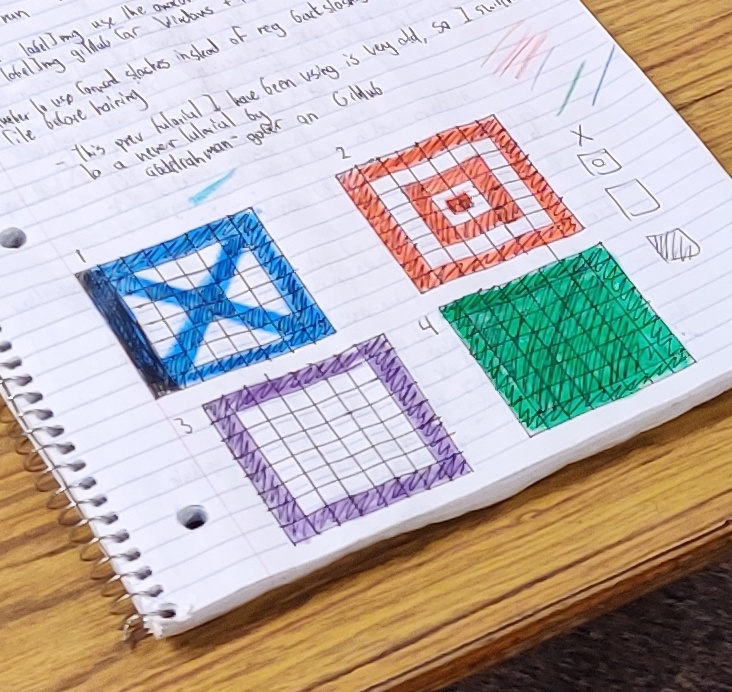 run
labelImg use the
labelImg github for Windows +
to use forward slashes instead of reg backslashes
file before training
- This prev tutorial I have been using is very old, so I
to a newer tutorial by
abdelrahman-gaber on GitHub
1
2
3
4